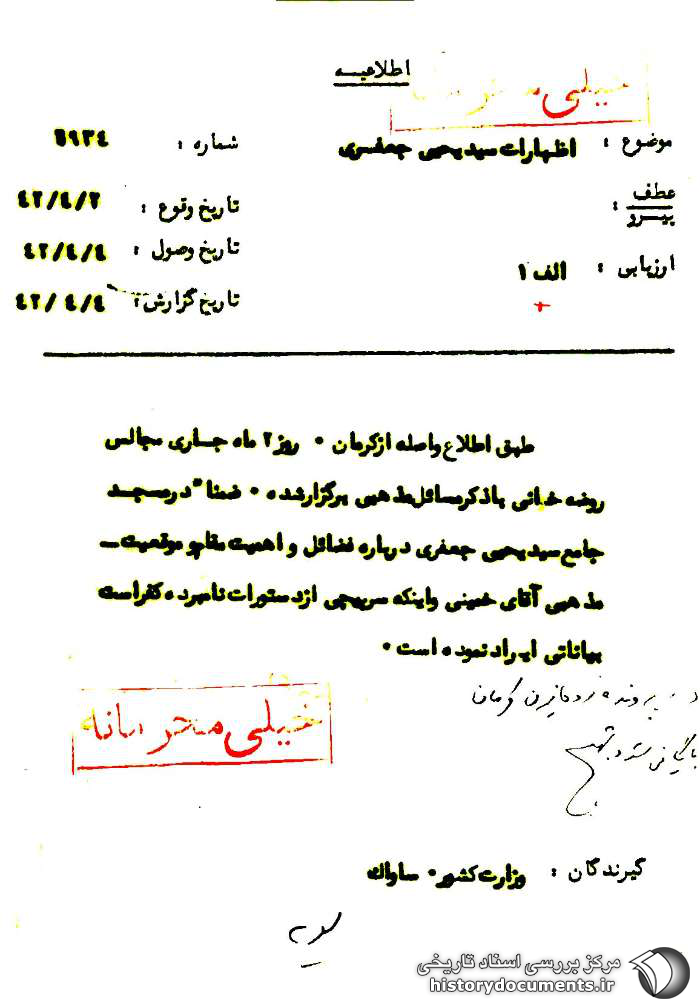 اطلاعیه
خیلی محرمانه
موضوع : اظهارات سید یحیی جعفری
شماره : ۶۹۳٤
عطف
پیرو :
تاریخ وقوع : ٤۲/٤/۲
تاریخ وصول : ٤۲/٤/٤
ارزیابی : الف ۱
تاریخ گزارش : ٤۲/٤/٤
طبق اطلاع واصله از کرمان ۰ روز ۲ ماه جاری مجالس
روضه خوانی با ذکر مسائل مذهبی برگزار شده ۰ ضمنا" در مسجد
جامع سید یحیی جعفری درباره فضائل و اهمیت مقام و موقعیت ــ
مذهبی آقای خمینی و اینکه سرپیچی از دستورات نامبرده کفر است
بیاناتی ایراد نموده است ۰
در پرونده کرمان
خیلی محرمانه
گیرندگان : وزارت کشور ۰ ساواک
مرکز بررسی اسناد تاریخی
historydocuments.ir